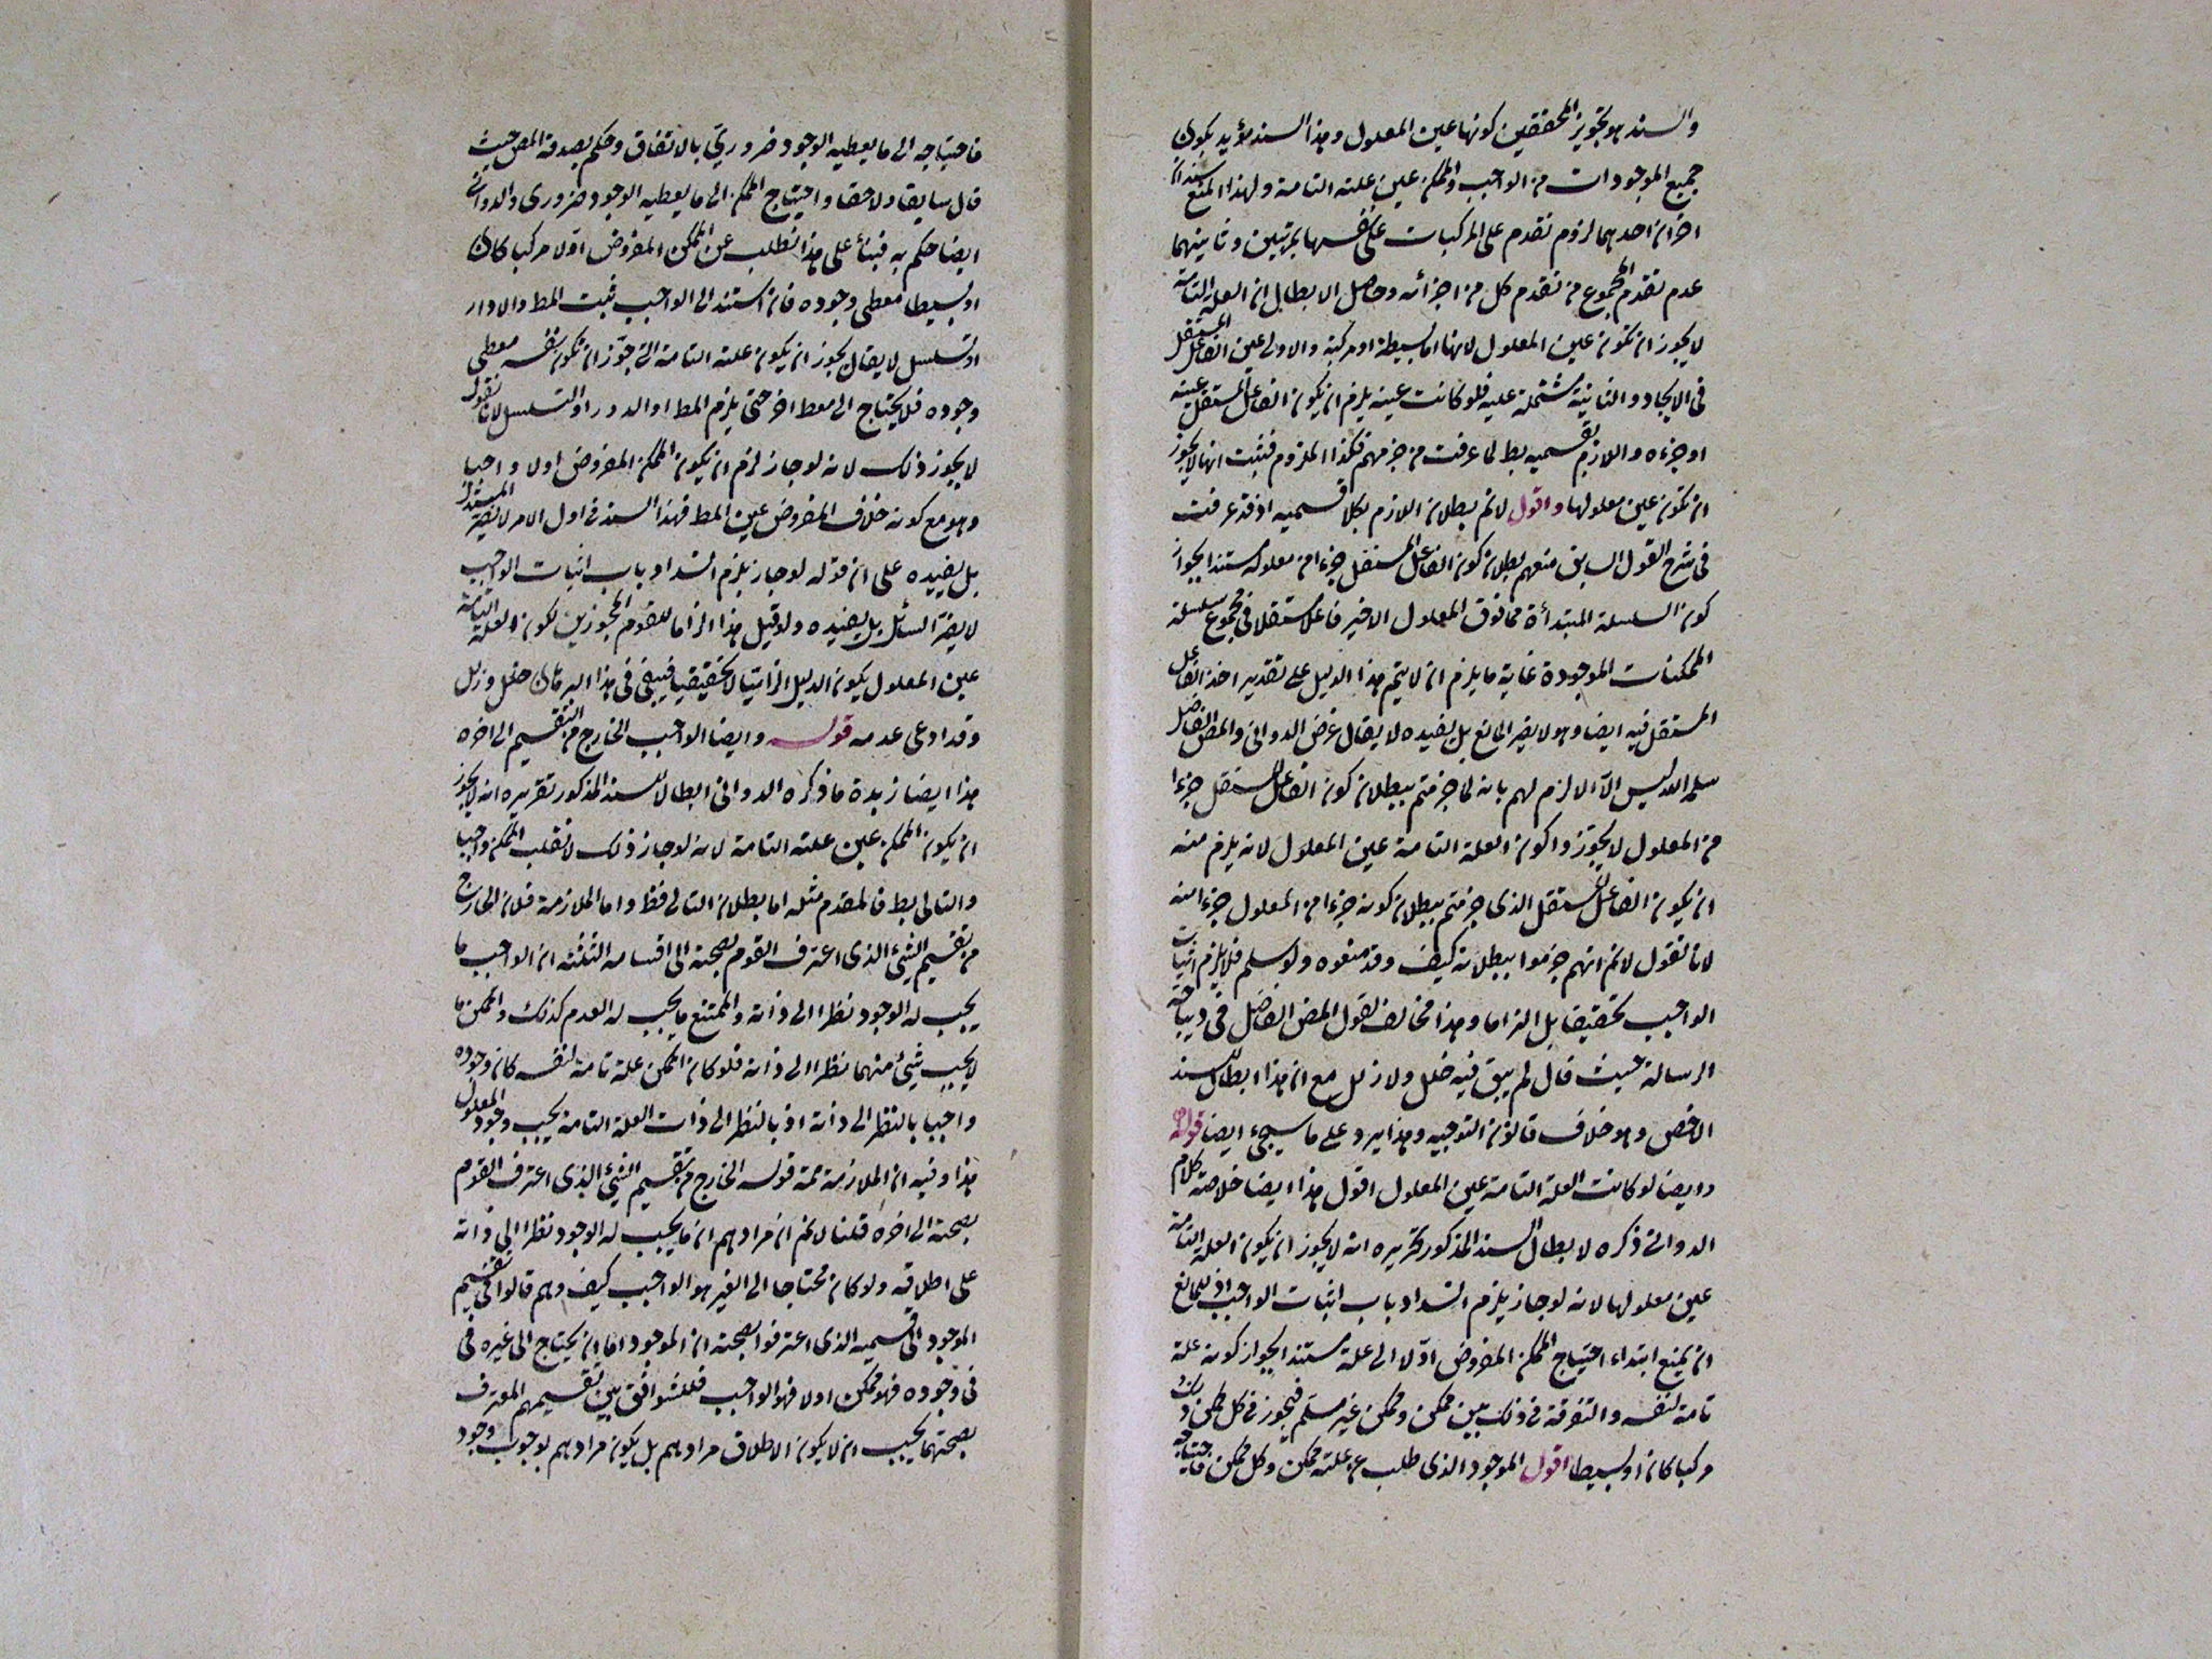 والسند هو تجويز المحققين كونها عين المعلول وهذا السند مؤيد بكون
جميع الموجودات من الواجب والممكن عين علته التامة ولهذا المنع سندان
اخران احدهما لزوم تقدم على المركبات على نفسها بمرتبين وثانيهما
عدم تقدم المجموع من تقدم كل من اجزائه وحاصل الابطال ان العلة التامة
لا يجوز ان تكون عين المعلول لانها اما بسيطة او مركبة والاولى عين الفاعل المستقل
فى الايجاد والثانية مشتملة عليه فلو كانت عينه يلزم ان يكون الفاعل المستقل عينه
او جزءه واللازم بقسميه بط لما عرفت من جزمهم فكذا الملزوم فثبت انها لا يجوز
ان تكون عين معلولها واقول لانم بطلان اللازم بكلا قسميه اذ قد عرفت
فى شرح القول السابق منعهم بطلان كون الفاعل المستقل جزءا من معلوله مستندا بجواز
كون السلسلة المبتدأة مما فوق المعلول الاخير فاعلا مستقلا فى مجموع سلسلة
الممكنات الموجودة غاية ما يلزم ان لا يتم هذا الدليل على تقدير اخذ الفاعل
المستقل فيه ايضا وهو لا يضر المانع بل يفيده لا يقال غرض الدوانى والمص الفاضل
سلمه الله ليس الا الالزم لهم بانه لما جزمتم ببطلان كون الفاعل المستقل جزءا
من المعلول لا يجوزوا كون العلة التامة عين المعلول لانه يلزم منه
ان يكون الفاعل المستقل الذى جزمتم ببطلان كونه جزءا من المعلول جزءا منه
لانا نقول لانم انهم جزموا ببطلانه كيف وقد منعوه ولو سلم فلا يلزم اثبات
الواجب تحقيقا بل الزاما وهذا مخالف لقول المص الفاضل فى ديباجة
الرسالة حيث قال لم يبق فيه خلل ولا زلل مع ان هذا ابطال للسند
الاخص وهو خلاف قانون التوجيه وهذا يرد على ما سيجئ ايضا قوله
وايضا لو كانت العلة التامة عين المعلول اقول هذا ايضا خلاصة كلام
الدوانى ذكره لابطال السند المذكور تحريره انه لا يجوز ان يكون العلة التامة
عين معلولها لانه لو جاز يلزم انسداد باب اثبات الواجب اذ للمانع
ان يمنع ابتداء احتياج الممكن المفروض اولا الى علة مستندا بجواز كونه علة
تامة لنفسه والتفرقة فى ذلك بين ممكن وممكن غير مسلم فيجوز فى كل ممكن ذلك
مركبا كان او بسيطا اقول الموجود الذى طلب عن علته ممكن وكل ممكن فاحتياجه
فاحتياجه الى ما يعطيه الوجود ضرورى بالاتفاق وحكم بصدقه المص حيث
قال سابقا ولاحقا واحتياج الممكن الى ما يعطيه الوجود ضرورى والدوانى
ايضا حكم به فبناء على هذا نطلب عن الممكن المفروض اولا مركبا كان
او بسيطا معطى وجوده فان استند الى الواجب ثبت المط والا دار
او تسلسل لا يقال يجوز ان يكون علته التامة التى جوز ان تكون نفسه معطى
وجوده فلا يحتاج الى معط اخر حتى يلزم المط او الدور او التسلسل لانا نقول
لا يجوز ذلك لانه لو جاز لزم ان يكون الممكن المفروض اولا واجبا
وهو مع كونه خلاف المفروض عين المط فهذا السند فى اول الامر لا يضر المستدل
بل يفيده على ان قوله لو جاز يلزم انسداد باب اثبات الواجب
لا يضر السائل بل يفيده ولو قيل هذا الزاما للقوم المجوزين لكون العلة التامة
عين المعلول يكون الدليل الزاميا لا تحقيقيا فيبقى فى هذا البرهان خلل وزلل
وقد ادعى عدمه قوله وايضا الواجب الخارج من التقسيم الى اخره
هذا ايضا زبدة ما ذكره الدوانى ابطالا للسند المذكور تقريره انه لا يجوز
ان يكون الممكن عين علته التامة لانه لو جاز ذلك لانقلب الممكن واجبا
والتالى بط فالمقدم مثله اما بطلان التالى فظ واما الملازمة فلان الخارج
من تقسيم الشئ الذى اعترف القوم بصحته الى اقسامه الثلثة ان الواجب ما
يجب له الوجود نظرا الى ذاته والممتنع ما يجب له العدم كذلك والممكن ما
لا يجب شئ منهما نظرا الى ذاته فلو كان الممكن علة تامة لنفسه كان وجوده
واجبا بالنظر الى ذاته اذ بالنظر الى ذات العلة التامة يجب وجود المعلول
هذا وفيه ان الملازمة ثمة قوله الخارج من تقسيم الشئ الذى اعترف القوم
بصحته الى اخره قلنا لانم ان مرادهم ان ما يجب له الوجود نظرا الى ذاته
على اطلاقه ولو كان محتاجا الى الغير هو الواجب كيف وهم قالوا فى تقسيم
الموجود الى قسميه الذى اعترفوا بصحته ان الموجود اما ان يحتاج الى غيره فى
فى وجوده فهو ممكن اولا فهو الواجب فللتوافق بين تقسيمهم المعترف
بصحتهما يجب ان لا يكون الاطلاق مرادهم بل يكون مرادهم بوجوب وجود